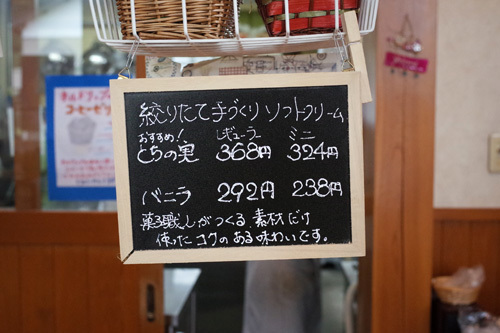 絞りたて手づくりソフトクリーム
おすすめ! レギュラー ミニ
とちの実 368円 324円
バニラ 292円 238円
菓子職人がつくる 素材だけ
使ったコクのある味わいです。
コーヒーゼリ